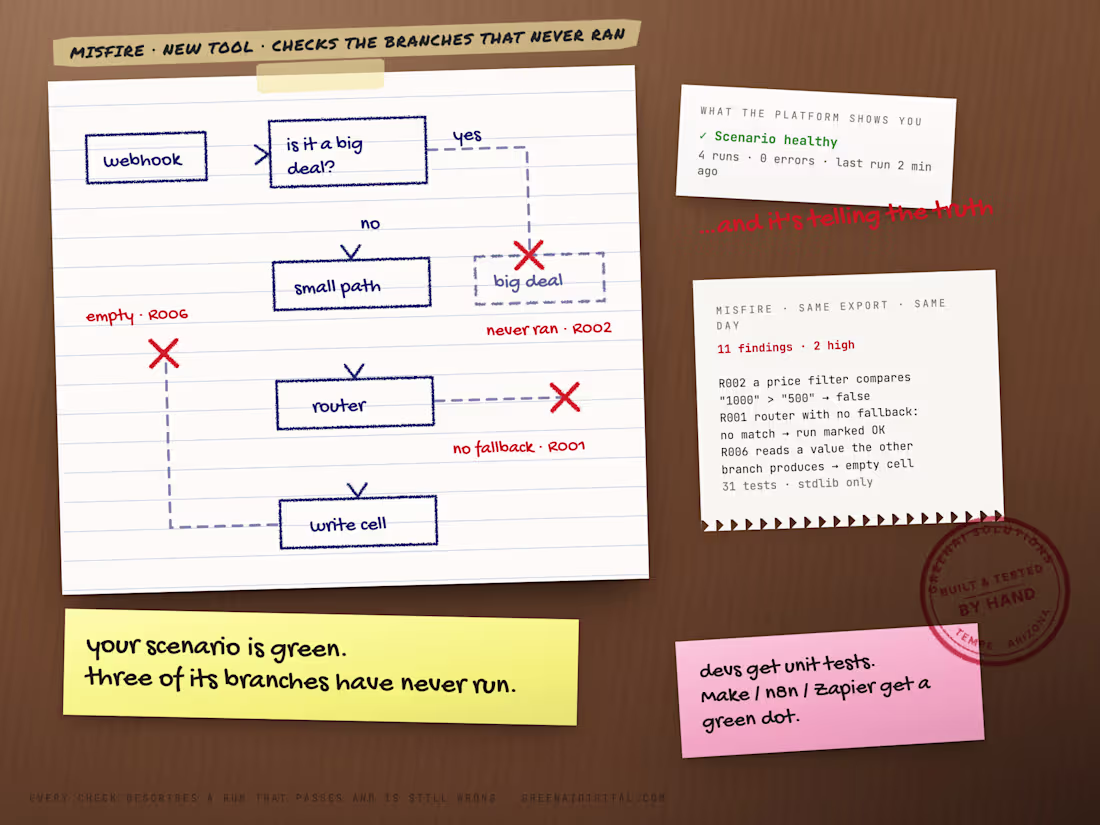 MISFIRE · NEW TOOL · CHECKS THE BRANCHES THAT NEVER RAN
webhook
is it a big
deal?
yes
no
small path
big deal
empty · R006
never ran · R002
router
no fallback · R001
write cell
WHAT THE PLATFORM SHOWS YOU
✓ Scenario healthy
4 runs · 0 errors · last run 2 min
ago
...and it's telling the truth
MISFIRE · SAME EXPORT · SAME
DAY
11 findings · 2 high
R002 a price filter compares
"1000" > "500" → false
R001 router with no fallback:
no match → run marked OK
R006 reads a value the other
branch produces → empty cell
31 tests · stdlib only
GREENAI SOLUTIONS
BUILT & TESTED
BY HAND
TEMPE ARIZONA
your scenario is green.
three of its branches have never run.
devs get unit tests.
Make / n8n / Zapier get a
green dot.
EVERY CHECK DESCRIBES A RUN THAT PASSES AND IS STILL WRONG